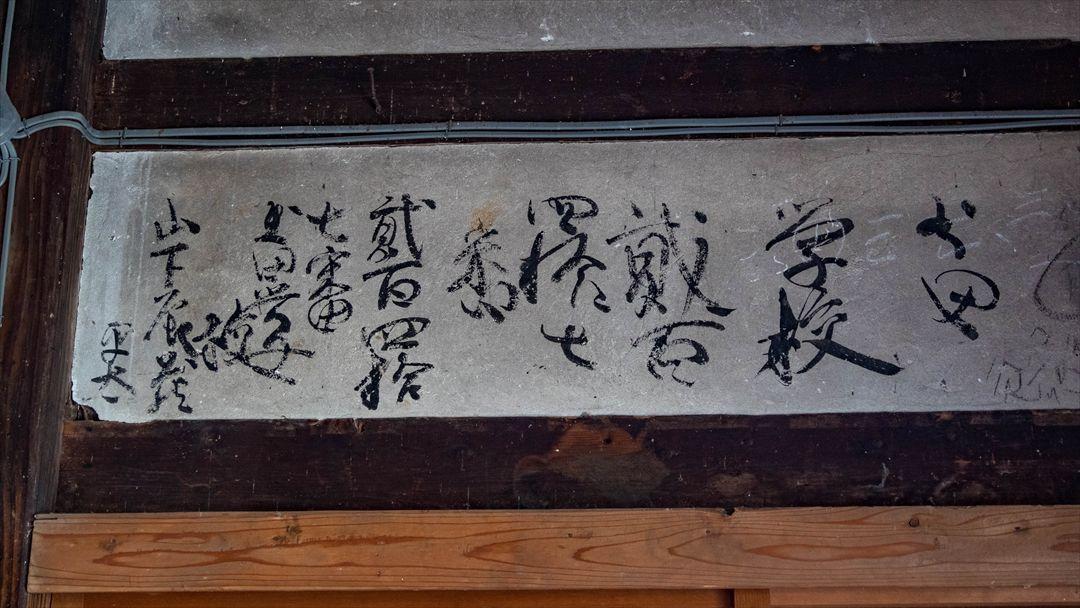 上田
学校
貳百
四拾七
番
貳百四拾
七番
上田学校
山下辰